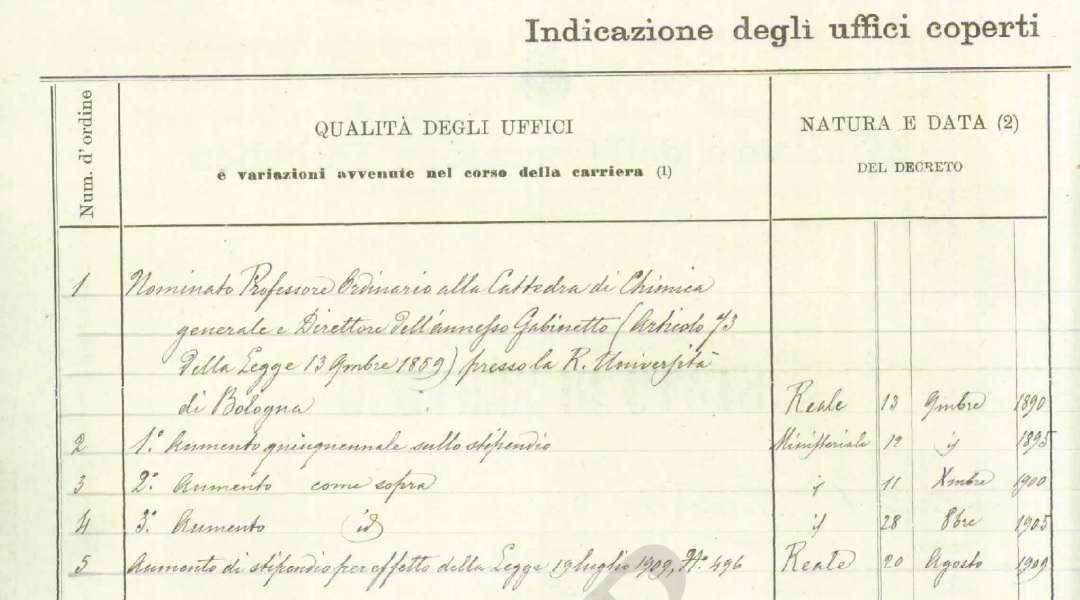 Indicazione degli uffici coperti
Num. d'ordine
QUALITÀ DEGLI UFFICI
e variazioni avvenute nel corso della carriera (1)
NATURA E DATA (2)
DEL DECRETO
1 Nominato Professore Ordinario alla Cattedra di Chimica
generale e Direttore dell'annesso Gabinetto (Articolo 73
della Legge 13 9mbre 1859) presso la R. Università
di Bologna Reale 13 9mbre 1890
2 1º Aumento quinquennale sullo stipendio Ministeriale 12 id 1895
3 2º Aumento come sopra id 11 Xmbre 1900
4 3º Aumento (id) id 28 8bre 1905
5 Aumento di stipendio per effetto della Legge 19 luglio 1909, Nº 496 Reale 20 Agosto 1909